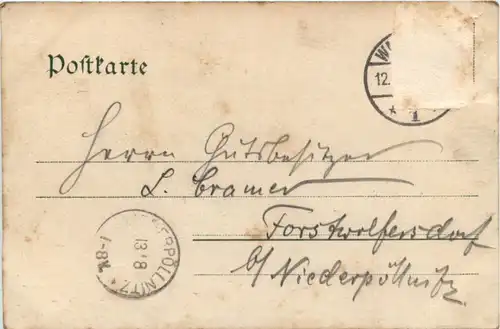 Postkarte
12.
1
Herrn Gutsbesitzer
L. Cramer
Forstwolfersdorf
b/ Niederpöllnitz
PÖLLNITZ
13/8
7-8V.